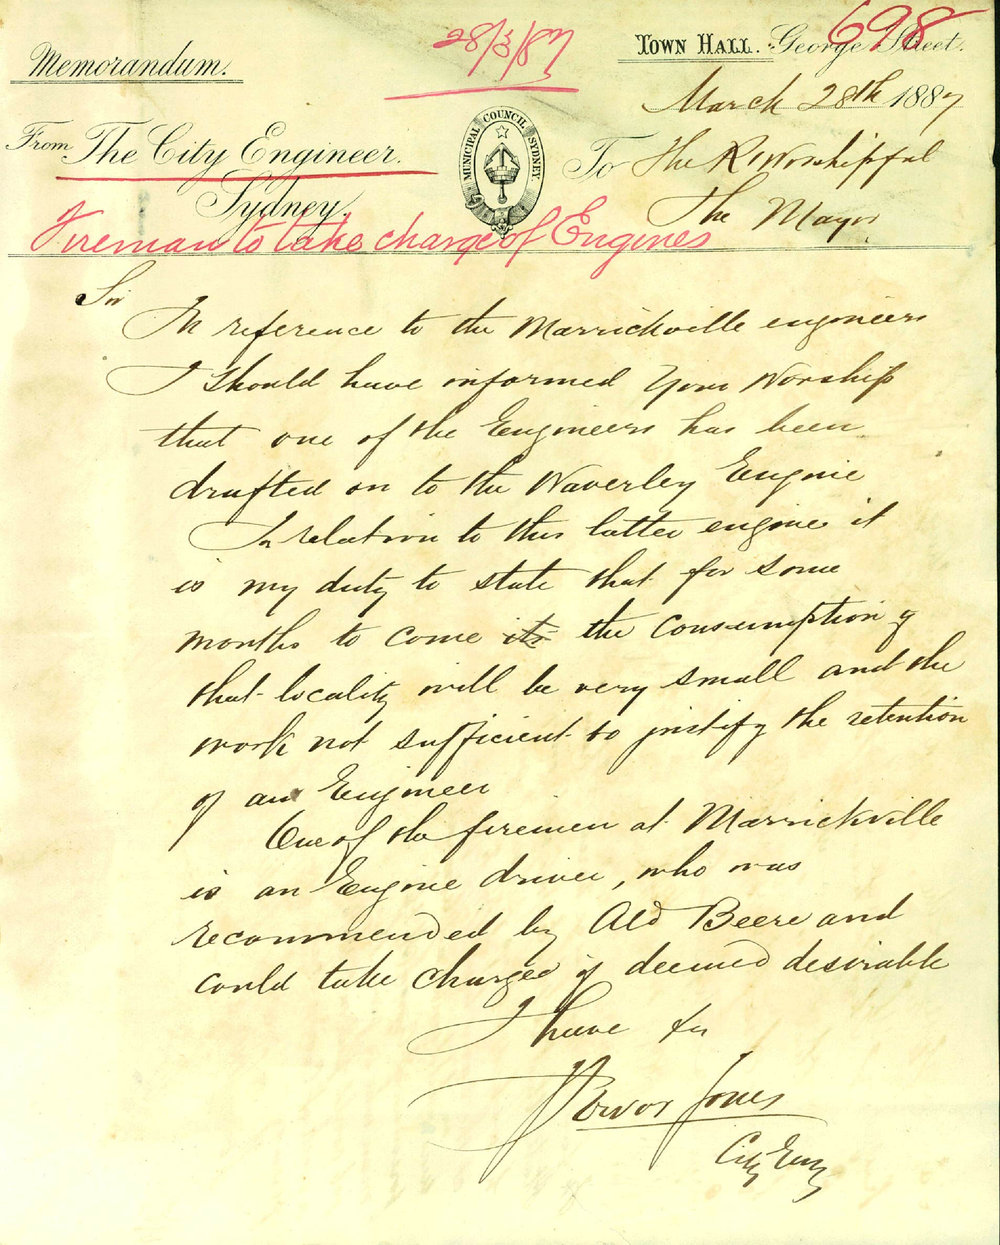 698
28/3/87
Memorandum.
TOWN HALL. George Street.
March 28th 1887
From The City Engineer.
Sydney.
MUNICIPAL COUNCIL SYDNEY
To The Rt Worshipful
The Mayor
Fireman to take charge of Engines
Sir
In reference to the Marrickville engineers
I should have informed Your Worship
that one of the Engineers has been
drafted on to the Waverley Engine
In relation to this latter engine it
is my duty to state that for some
months to come its the consumption of
that locality will be very small and the
work not sufficient to justify the retention
of an Engineer
One of the firemen at Marrickville
is an Engine driver, who was
recommended by Ald Beere and
could take charge if deemed desirable
I have &c
Trevor Jones
City Engr